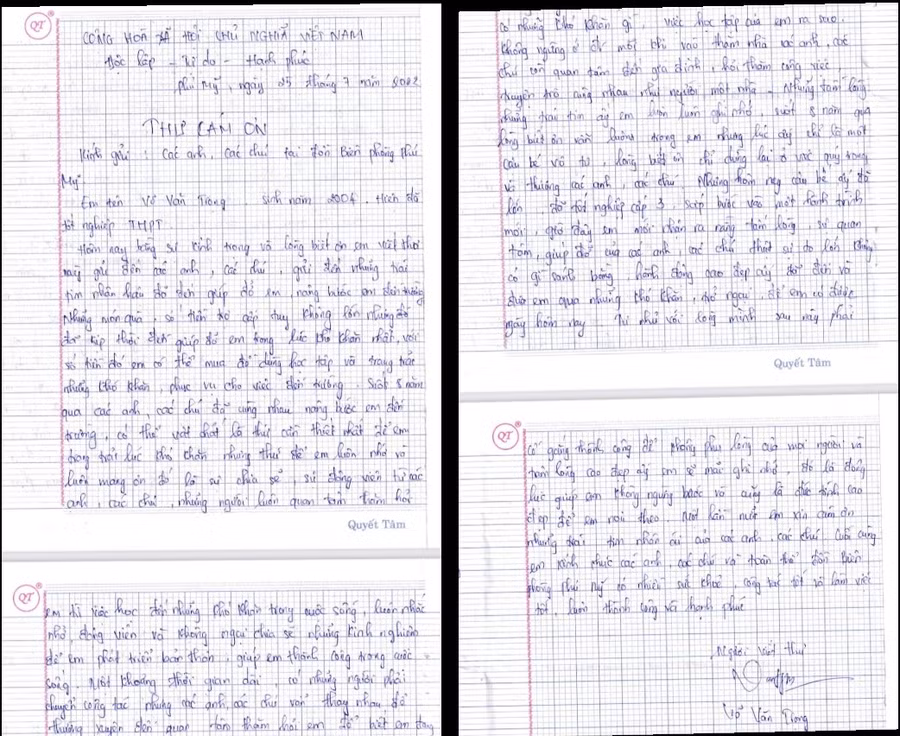 QT
CỘNG HOÀ XÃ HỘI CHỦ NGHĨA VIỆT NAM
Độc lập - Tự do - Hạnh phúc
Phú Mỹ, ngày 25 tháng 7 năm 2022
THƯ CẢM ƠN
Kính gửi : Các anh, các chú tại đồn Biên phòng Phú
Mỹ
Em tên Võ Văn Trọng sinh năm 2004. Hiện đã
tốt nghiệp THPT
Hôm nay bằng sự kính trọng và lòng biết ơn em viết thư
này gửi đến các anh, các chú, gửi đến những trái
tim nhân hậu đã đến giúp đỡ em, nâng bước em đến trường
Những món quà, số tiền trợ cấp tuy không lớn nhưng đó
đã kịp thời đến giúp đỡ em trong lúc khó khăn nhất, với
số tiền đó em có thể mua đồ dùng học tập và trang trải
những khó khăn, phục vụ cho việc đến trường. Suốt 8 năm
qua các anh, các chú đã cùng nhau nâng bước em đến
trường, có thể vật chất là thứ cần thiết nhất để em
trong trải lúc khó khăn nhưng thứ để em luôn nhớ và
luôn mang ơn đó là sự chia sẻ, sự động viên từ các
anh, các chú, những người luôn quan tâm thăm hỏi
Quyết Tâm
QT
em từ việc học đến những khó khăn trong cuộc sống, luôn nhắc
nhở, động viên và không ngại chia sẻ những kinh nghiệm
để em phát triển bản thân, giúp em thành công trong cuộc
sống. Một khoảng thời gian dài, có những người phải
chuyển công tác nhưng các anh, các chú vẫn thay nhau để
thường xuyên đến quan tâm thăm hỏi em để biết em đang
có những khó khăn gì, việc học tập của em ra sao.
Không ngừng ở đó mỗi khi vào thăm nhà các anh, các
chú còn quan tâm đến gia đình, hỏi thăm công việc
truyện trò cùng nhau như người một nhà. Những tấm lòng
những trái tim ấy em luôn luôn ghi nhớ suốt 8 năm qua
lòng biết ơn vẫn luôn trong em nhưng lúc ấy chỉ là một
cậu bé vô tư, lòng biết ơn chỉ dừng lại ở việc quý trọng
và thương các anh, các chú. Nhưng hôm nay cậu bé ấy đã
lớn, đã tốt nghiệp cấp 3, sắp bước vào một hành trình
mới, giờ đây em mới nhận ra rằng tấm lòng, sự quan
tâm, giúp đỡ của các anh, các chú thật sự to lớn không
có gì sánh bằng, hành động cao đẹp ấy đã đến và
đưa em qua những khó khăn, trở ngại, để em có được
ngày hôm nay. Tự nhủ với lòng mình sau này phải
Quyết Tâm
QT
cố gắng thành công để không phụ lòng của mọi người và
tấm lòng cao đẹp ấy em sẽ mãi ghi nhớ, đó là động
lực giúp em không ngừng bước và cũng là đức tính cao
đẹp để em noi theo. Một lần nữa em xin cảm ơn
những trái tim nhân ái của các anh, các chú. Cuối cùng
em kính chúc các anh, các chú và toàn thể đồn Biên
phòng Phú Mỹ có nhiều sức khoẻ, công tác tốt và làm việc
tốt, luôn thành công và hạnh phúc
Người viết thư
Võ Văn Trọng